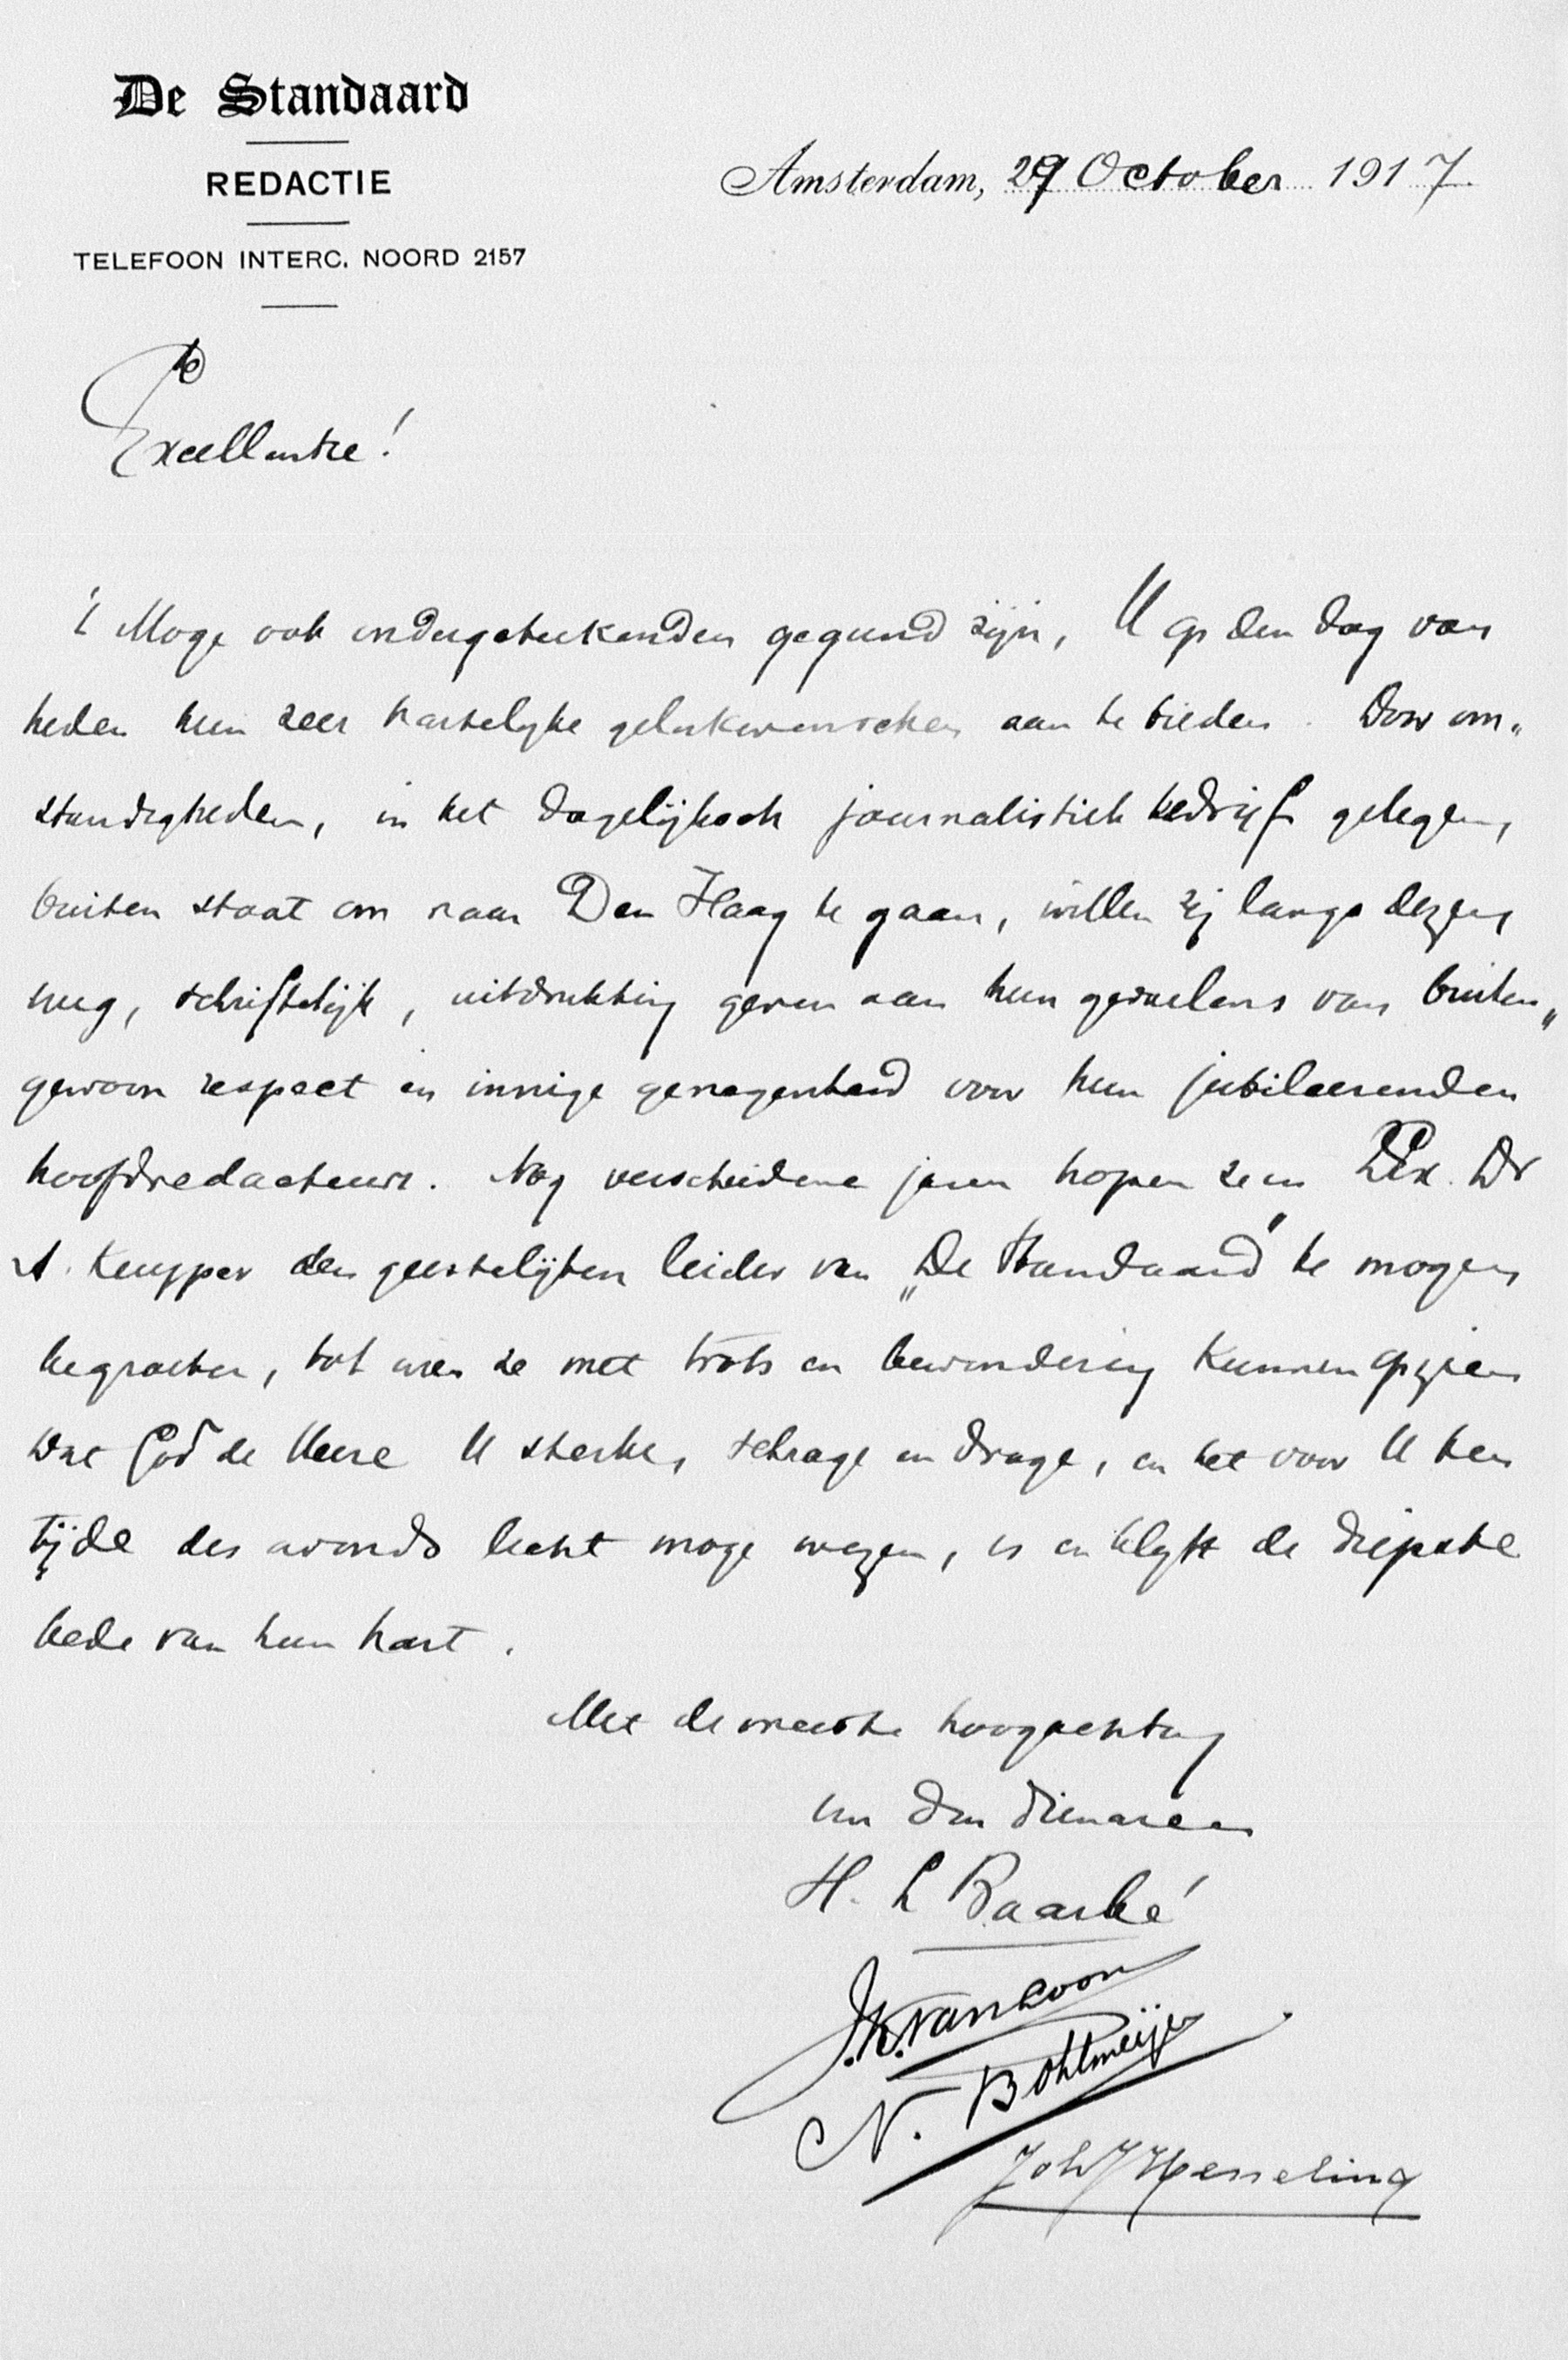 De Standaard
REDACTIE
TELEFOON INTERC. NOORD 2157
Amsterdam, 29 October 1917.
Excellentie!
't Moge ook ondergeteekenden gegund zijn, U op den dag van
heden hun zeer hartelijke gelukwenschen aan te bieden. Door om„
standigheden, in het dagelijksch journalistiek bedrijf gelegen,
buiten staat om naar Den Haag te gaan, willen zij langs dezen
weg, schriftelijk, uitdrukking geven aan hun gevoelens van buiten„
gewoon respect en innige genegenheid voor hun jubileerenden
hoofdredacteur. Nog verscheidene jaren hopen ze in Z.Ex. Dr
A. Kuyper den geestelijken leider van „De Standaard" te mogen
begroeten, tot wien ze met trots en bewondering kunnen opzien
Dat God de Heere U sterke, schrage en drage, en het voor U ten
tijde des avonds licht moge wezen, is en blijft de diepste
bede van hun hart.
Met de meeste hoogachting
Uw dw dienaren
H. L Baarbé
J.K. van Loon
N. Bohlmeijer
Joh J Hesseling